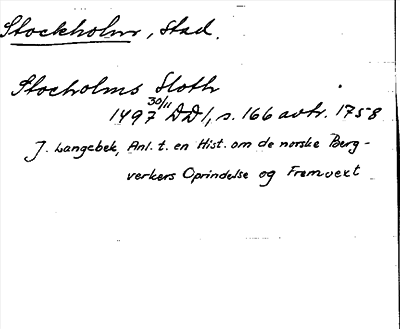 Stockholm, Stad.
Stocholms Sloth
1497 30/11 DD 1, s. 166 avtr. 1758
J. Langebek, Anl. t. en Hist. om de norske Berg-
verkers Oprindelse og Fremvext